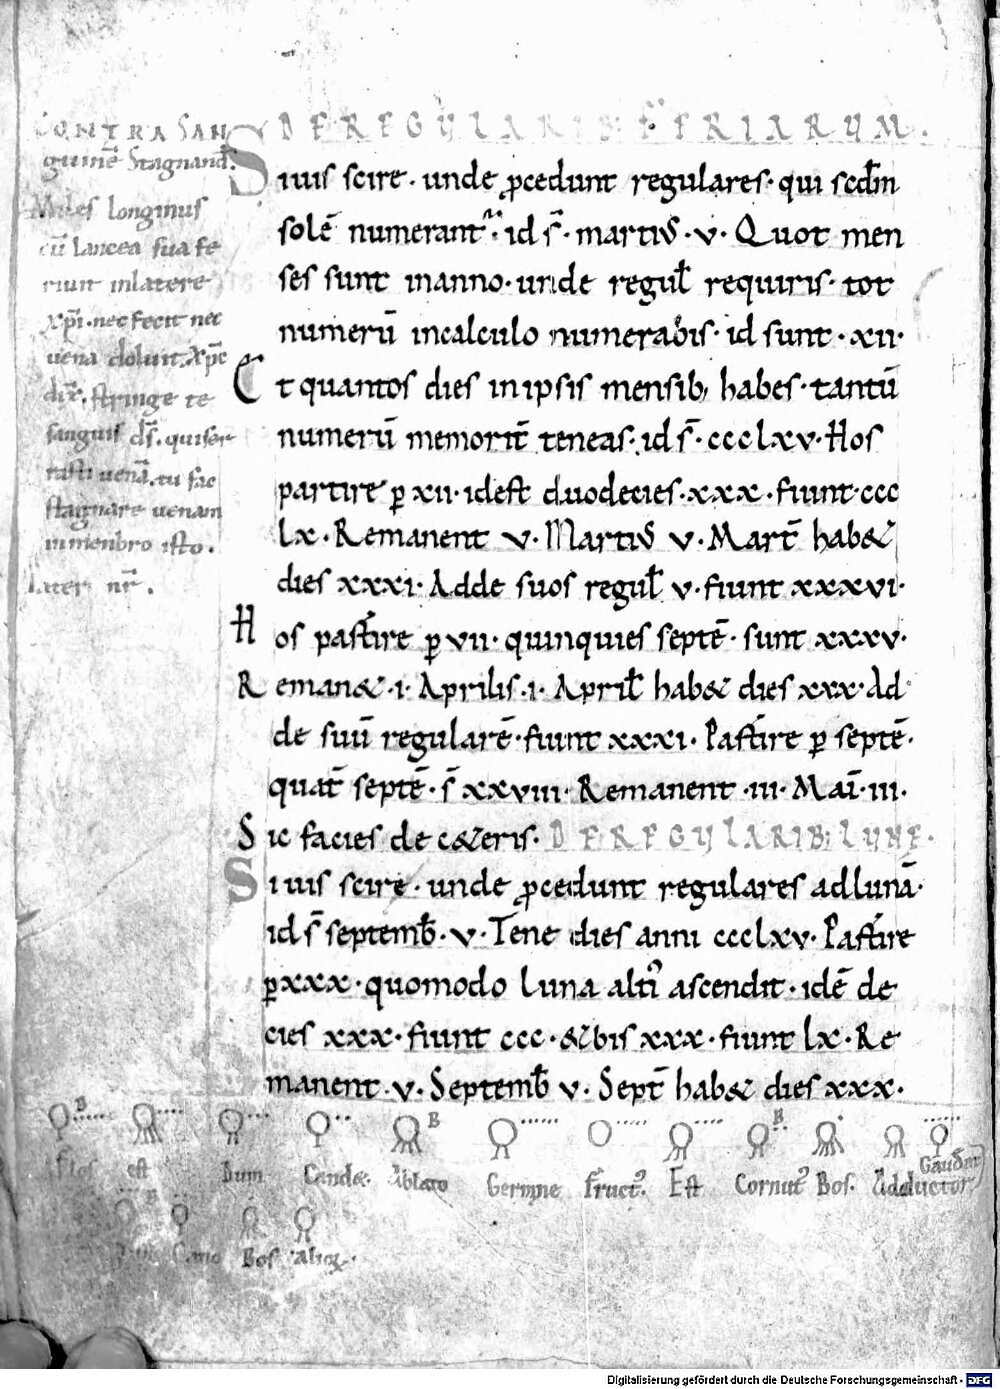 CONTRA SAN
guinē Stagnand̄.
Miles longinus
cū lancea sua fe
riunt inlatere
xp̄i · nec fecit nec
uena doluit. Xp̄c
dix̄. stringe te
sanguis d̄s. qui ser
rasti uenā. tu fac
stagnare uenam
inmenbro isto.
Pater nr̄.
DE REGULARIB; FERIARUM.
Siuis scire · unde p̄cedunt regulares · qui scdm̄
solē numerant᷑ · id s̄ · martiꝰ · v · Quot men
ses sunt inanno · unde regul̄ requiris · tot
numerū incalculo numerabis · id sunt · xii ·
Et quantos dies inipsis mensib; habes · tantū
numerū memorit̄ teneas · id s̄ · ccclxv · Hos
partire ꝑ xii · idest duodecies · xxx · fiunt · ccc
lx · Remanent v · Martiꝰ v · Mart̄ hab&
dies xxxi · Adde suos regul̄ v · fiunt xxxvi ·
Hos partire ꝑ vii · quinquies septē · sunt xxxv ·
Reman& · i · Aprilis · i · April̄ hab& dies xxx · Ad
de suū regularē · fiunt xxxi · Partire ꝑ septē ·
quat̄ septē · s̄ xxviii · Remanent · iii · Mai̅ · iii ·
Sic facies de c&eris · DE REGULARIB; LUNE ·
Siuis scire · unde p̄cedunt regulares adlunā ·
id s̄ septemb̄ · v · Tene dies anni ccclxv · Partire
ꝑ xxx · quomodo luna alti᷒ ascendit · idē de
cies xxx · fiunt ccc · & bis xxx · fiunt lx · Re
manent · v · Septemb̄ v · Sept̄ hab& dies xxx ·
B B B
Flos est Dum Candæ. Ablato Germine Fruct᷒. Est Cornut᷒ Bos. Adductor Gaud&
B
Bos aliq.
Digitalisierung gefördert durch die Deutsche Forschungsgemeinschaft - DFG